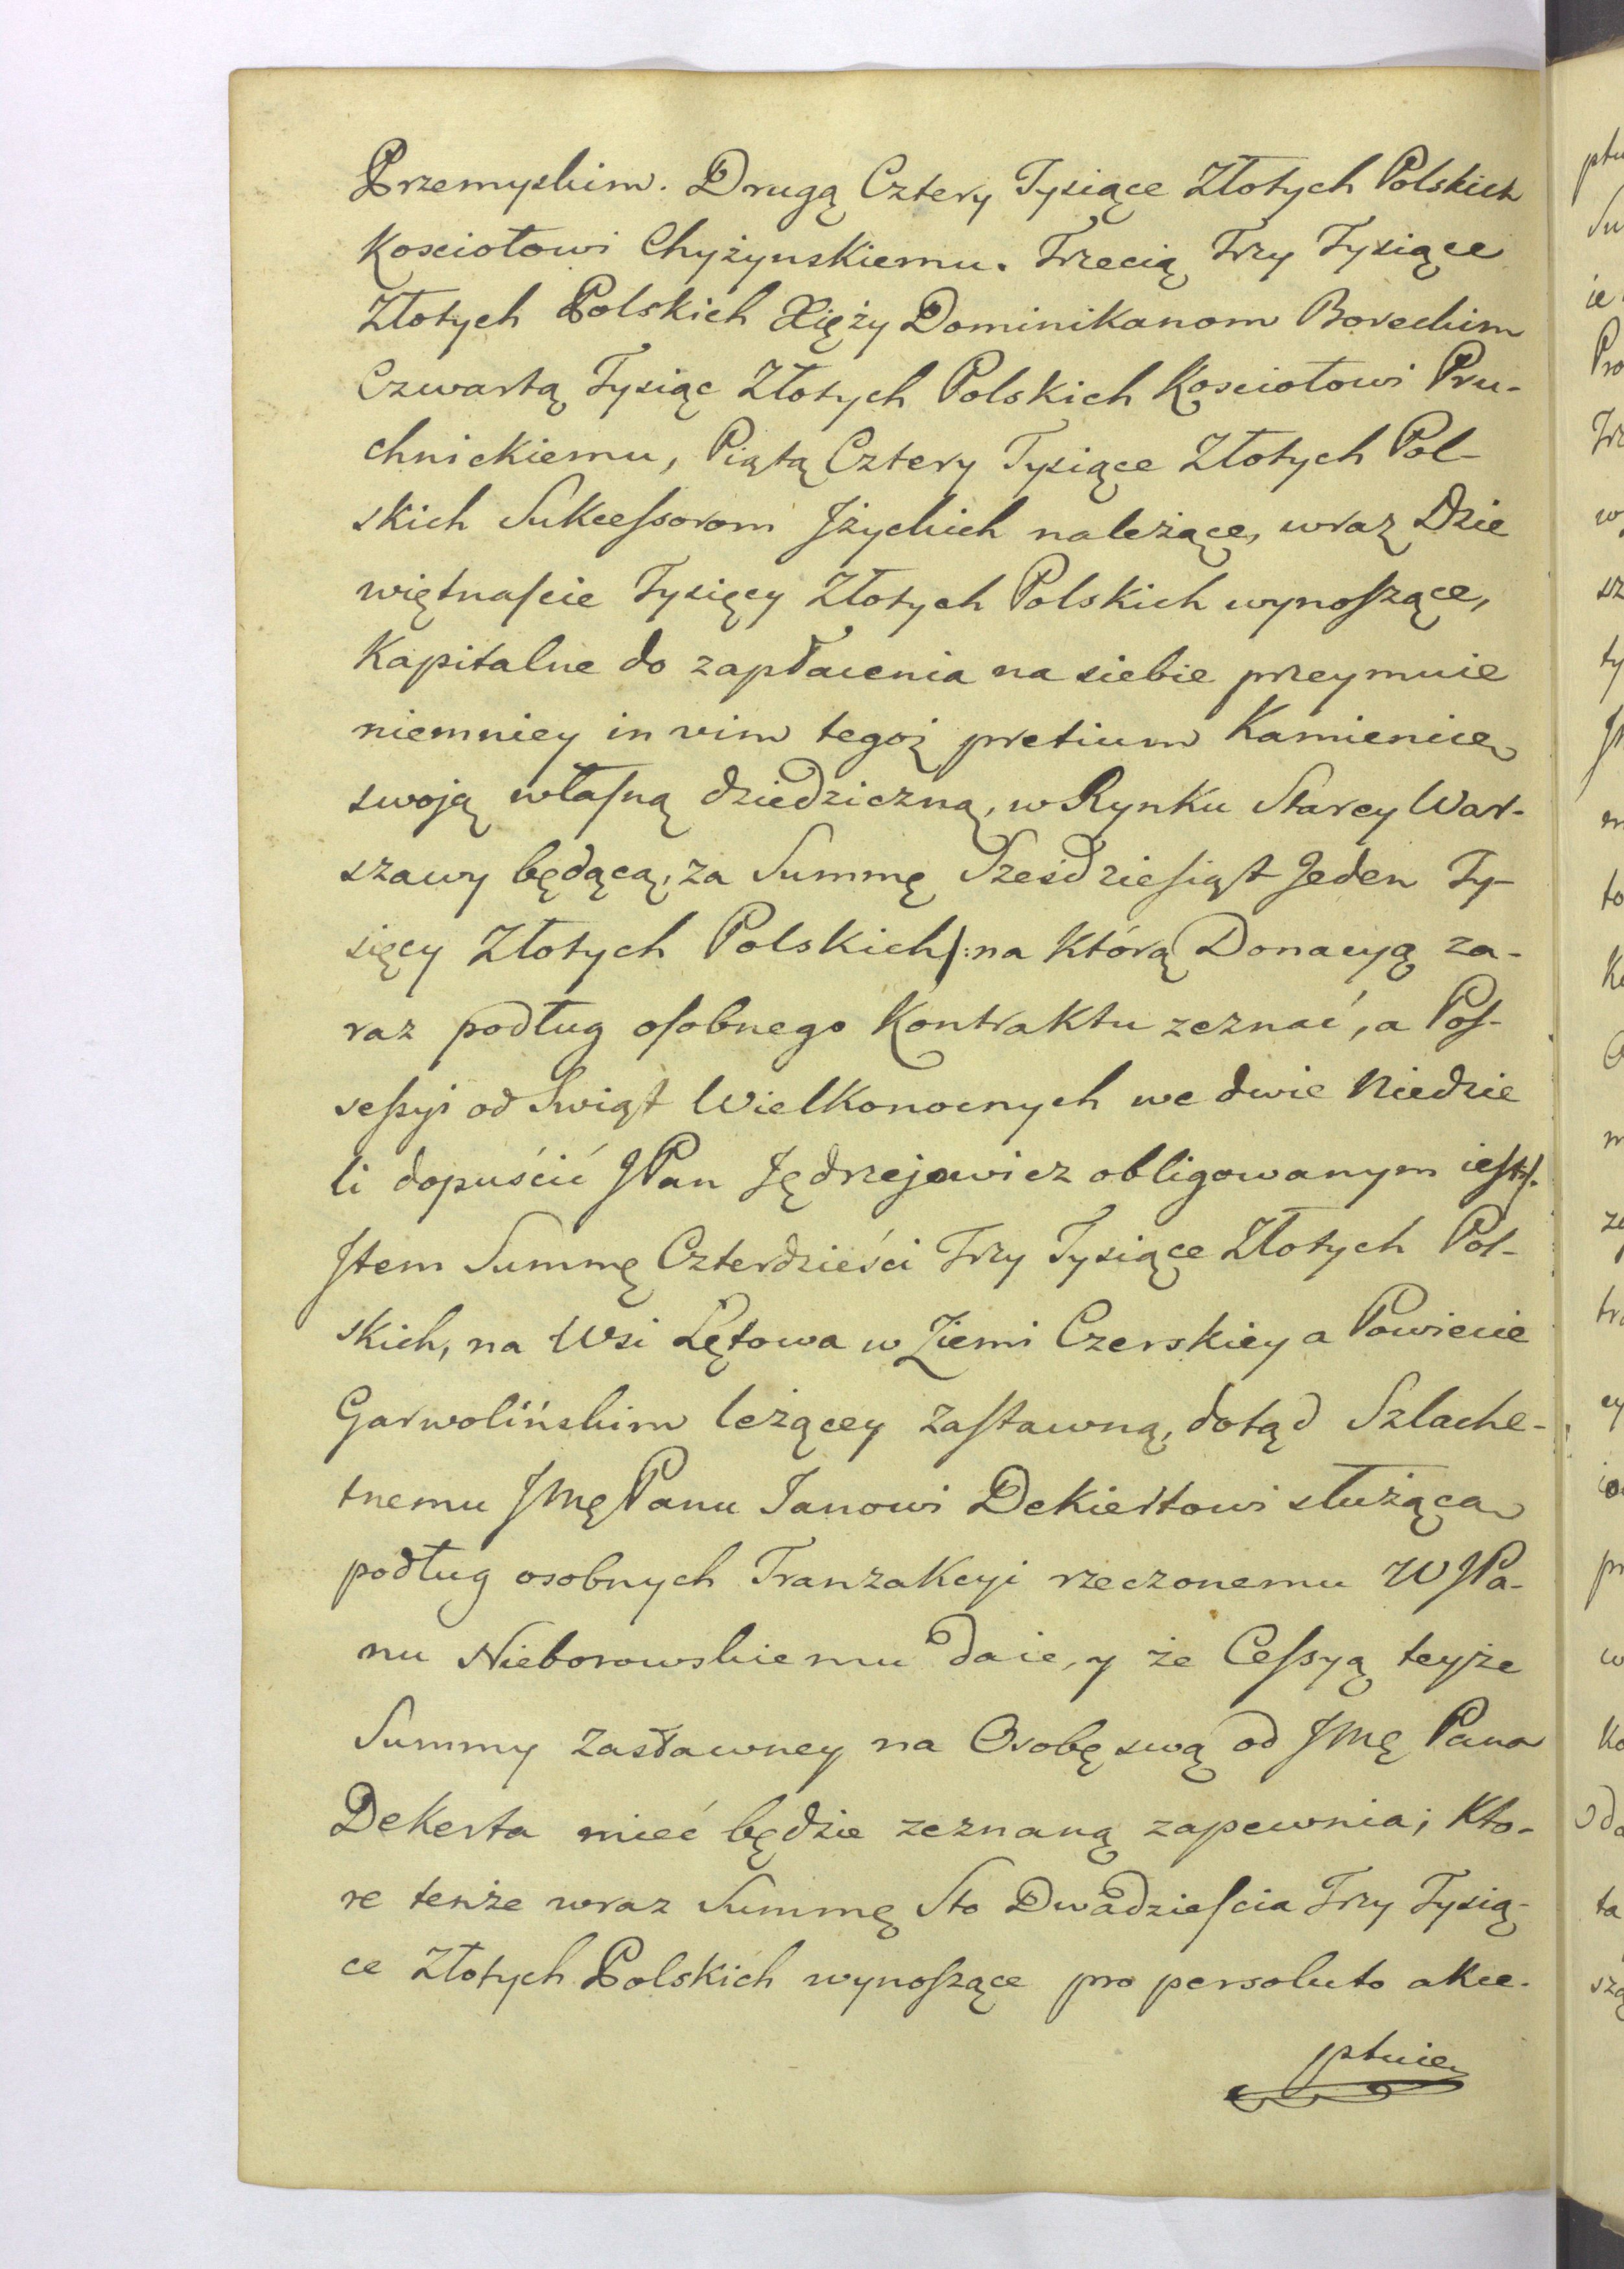 Przemyskim. Drugą Cztery Tysiące Złotych Polskich
Kosciołowi Chyżynskiemu. Trzecią Trzy Tysiące
Złotych Polskich Xięży Dominikanom Boreckim
Czwartą Tysiąc Złotych Polskich Kosciołowi Pru-
chnickiemu, Piątą Cztery Tysiące Złotych Pol-
skich Sukcessorom Jżyckich należące, wraz Dzie
więtnascie Tysięcy Złotych Polskich wynoszące,
Kapitalne do zapłacenia na siebie przeymuie
niemniey in vim tegoż pretium Kamienicę
swoją własną dziedziczną, w Rynku Starey War-
szawy będącą, za Summę Sześdziesiąt Jeden Ty-
sięcy Złotych Polskich /: na którą Donacyą za-
raz podług osobnego Kontraktu zeznać, a Pos-
sessyi od Swiąt Wielkonocnych we dwie Niedzie
li dopuścić JPan Jędrzejowicz obligowanym iest :/.
Jtem Summę Czterdzieści Trzy Tysiące Złotych Pol-
skich, na Wsi Lętowa w Ziemi Czerskiey a Powiecie
Garwolińskim leżącey zastawną, dotąd Szlache-
tnemu JMę Panu Janowi Dekiertowi służąca
podług osobnych Tranzakcyi rzeczonemu WJPa-
nu Nieborowskiemu daie, y że Cessyą teyże
Summy Zastawney na Osobę swą od JMę Pana
Dekerta mieć będzie zeznaną zapewnia; Kto-
re tenże wraz Summę Sto Dwadziescia Trzy Tysią-
ce Złotych Polskich wynoszące pro persoluto akce-
ptuie